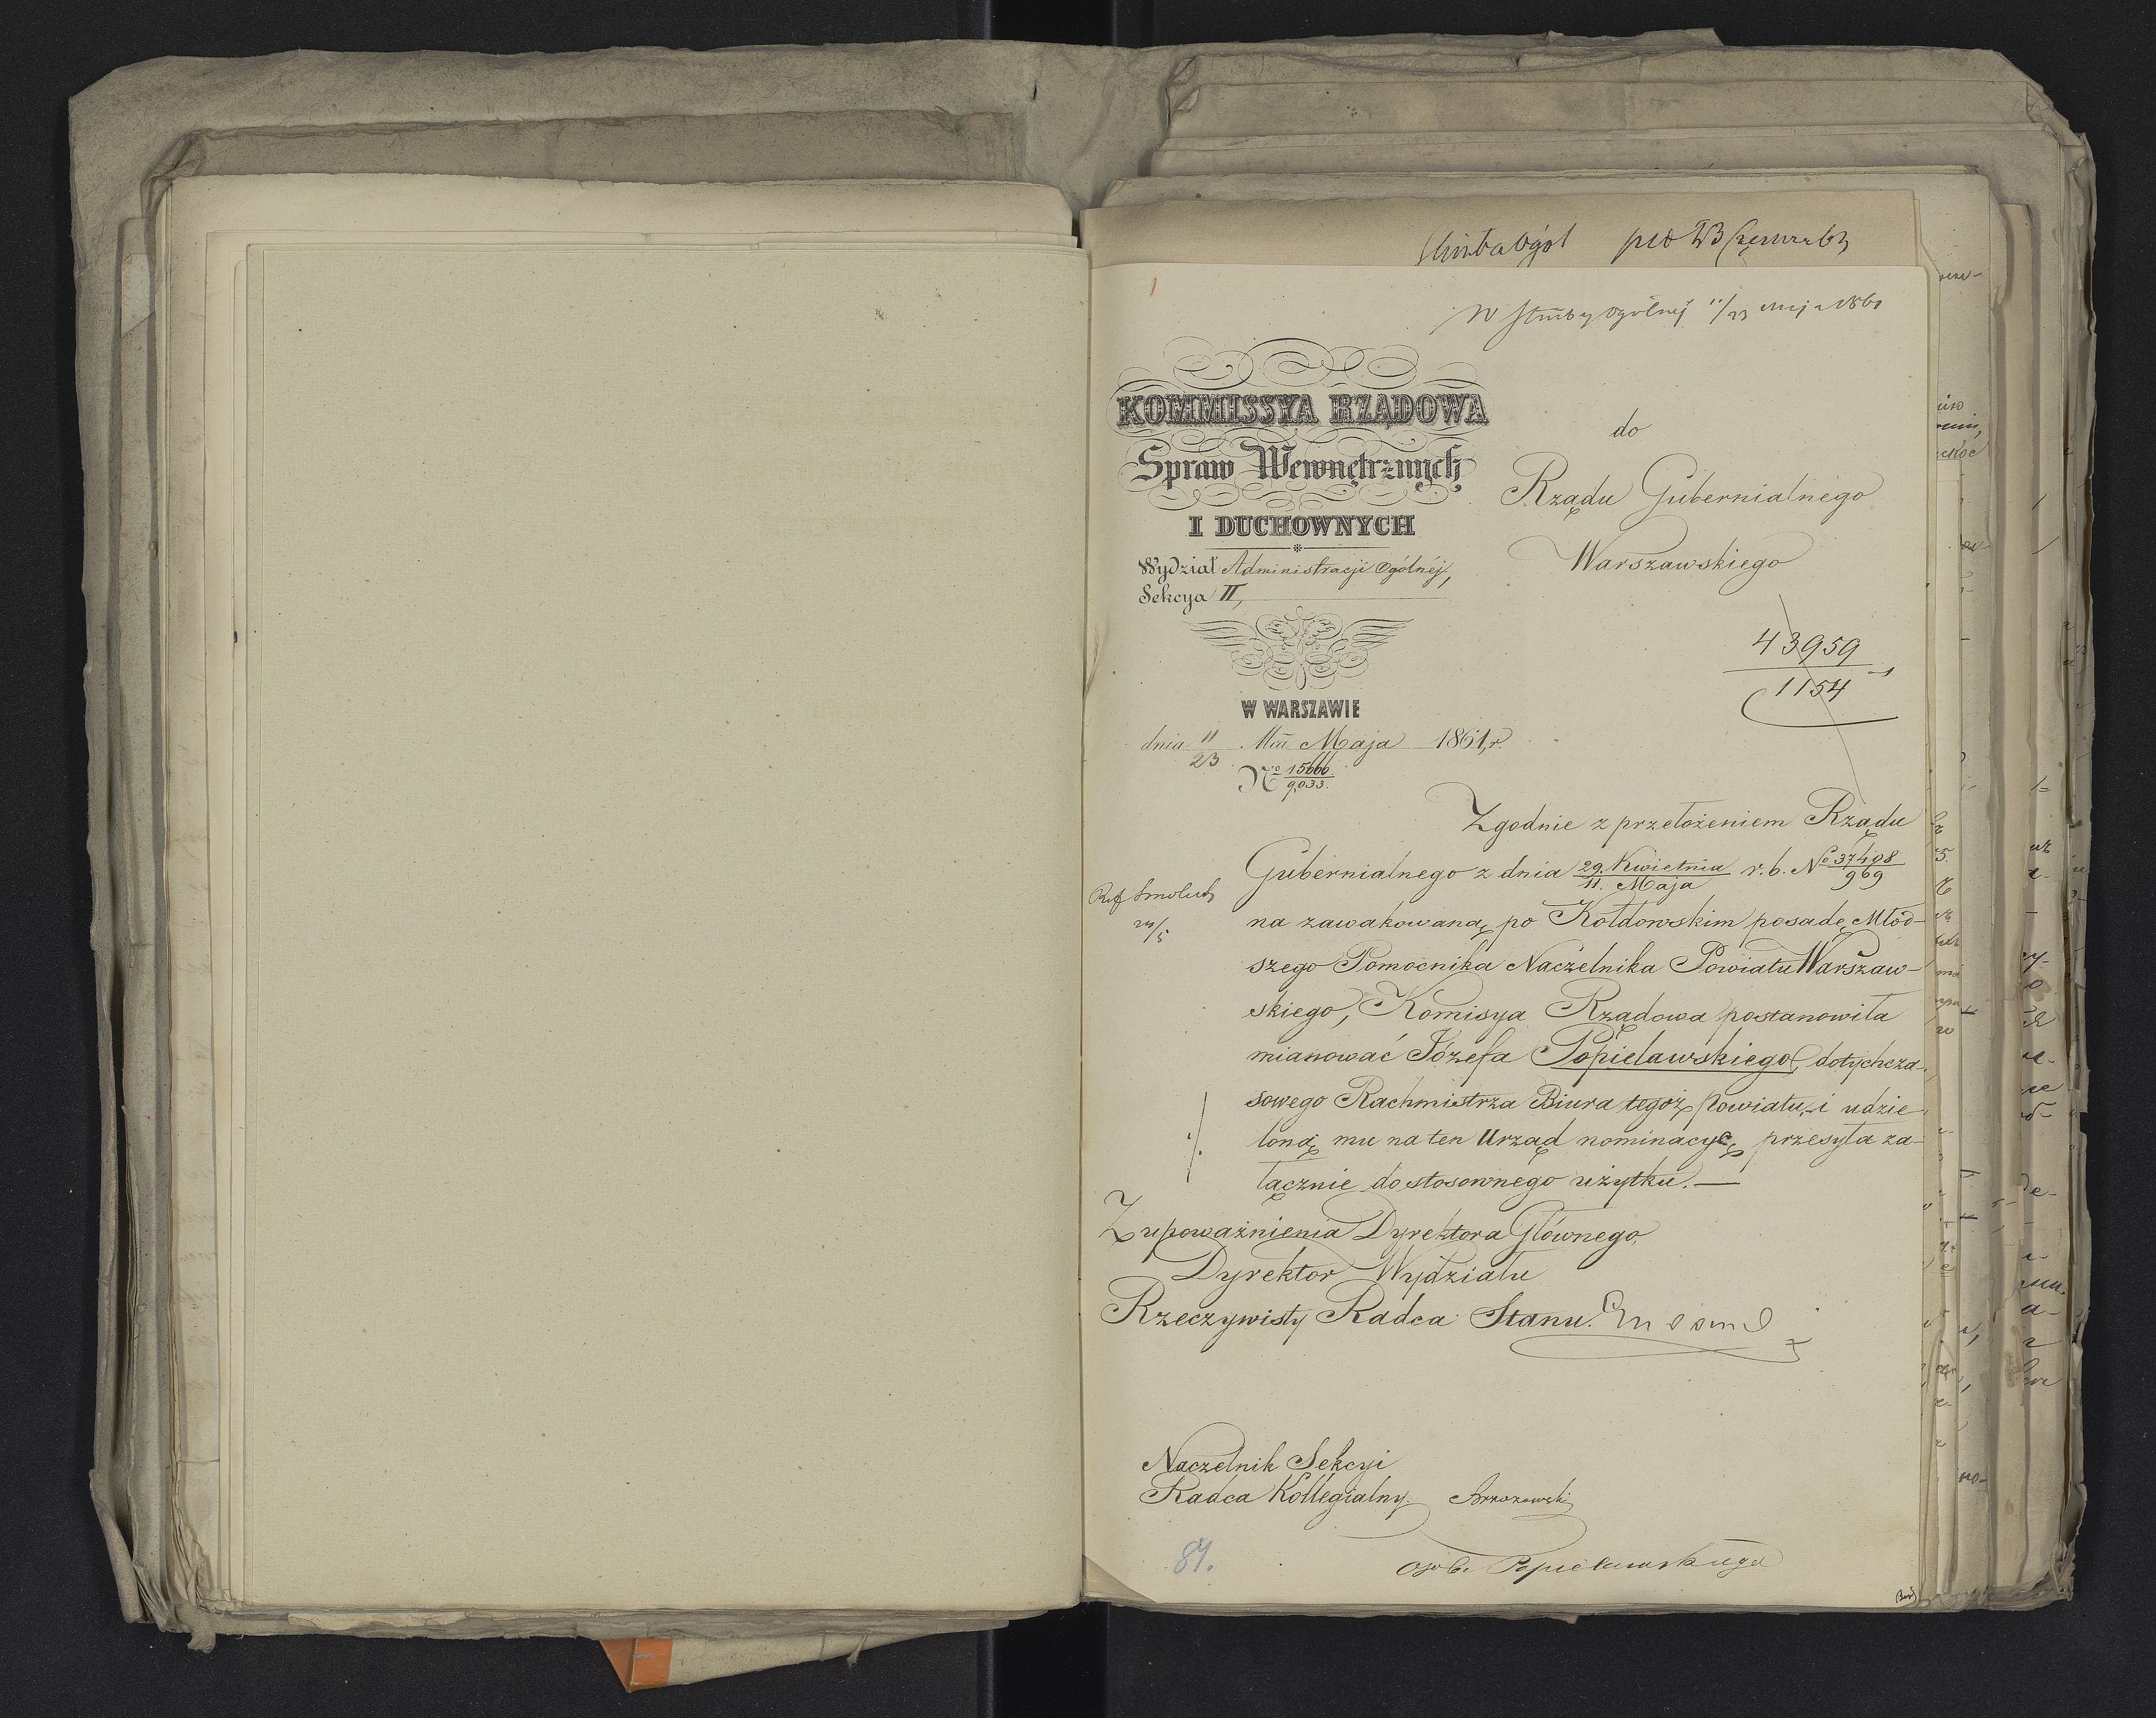 W Służby Ogólnej 11/23 Maja 1861
KOMMISSYA RZĄDOWA
Spraw Wewnętrznych
I DUCHOWNYCH
Wydział Administracji Ogólnéj,
Sekcya II,
W WARSZAWIE
dnia 11/23 Maja 1861 r.
No 15666/9033.
do
Rządu Gubernialnego
Warszawskiego
43959
1154
Zgodnie z przełożeniem Rządu
Gubernialnego z dnia 29. Kwietnia/11. Maja r. b. No 37408/969
na zawakowaną po Kołdowskim posadę Młod-
szego Pomocnika Naczelnika Powiatu Warszaw-
skiego, Komisya Rządowa postanowiła
mianować Józefa Popielawskiego, dotychcza-
sowego Rachmistrza Biura tegoż powiatu, i udzie-
loną mu na ten Urząd nominacyę przesyła za-
łącznie do stosownego użytku. —
Z upoważnienia Dyrektora Głównego
Dyrektor Wydziału
Rzeczywisty Radca Stanu.
Naczelnik Sekcyi
Radca Kollegialny.
Osob. Popielawskiego